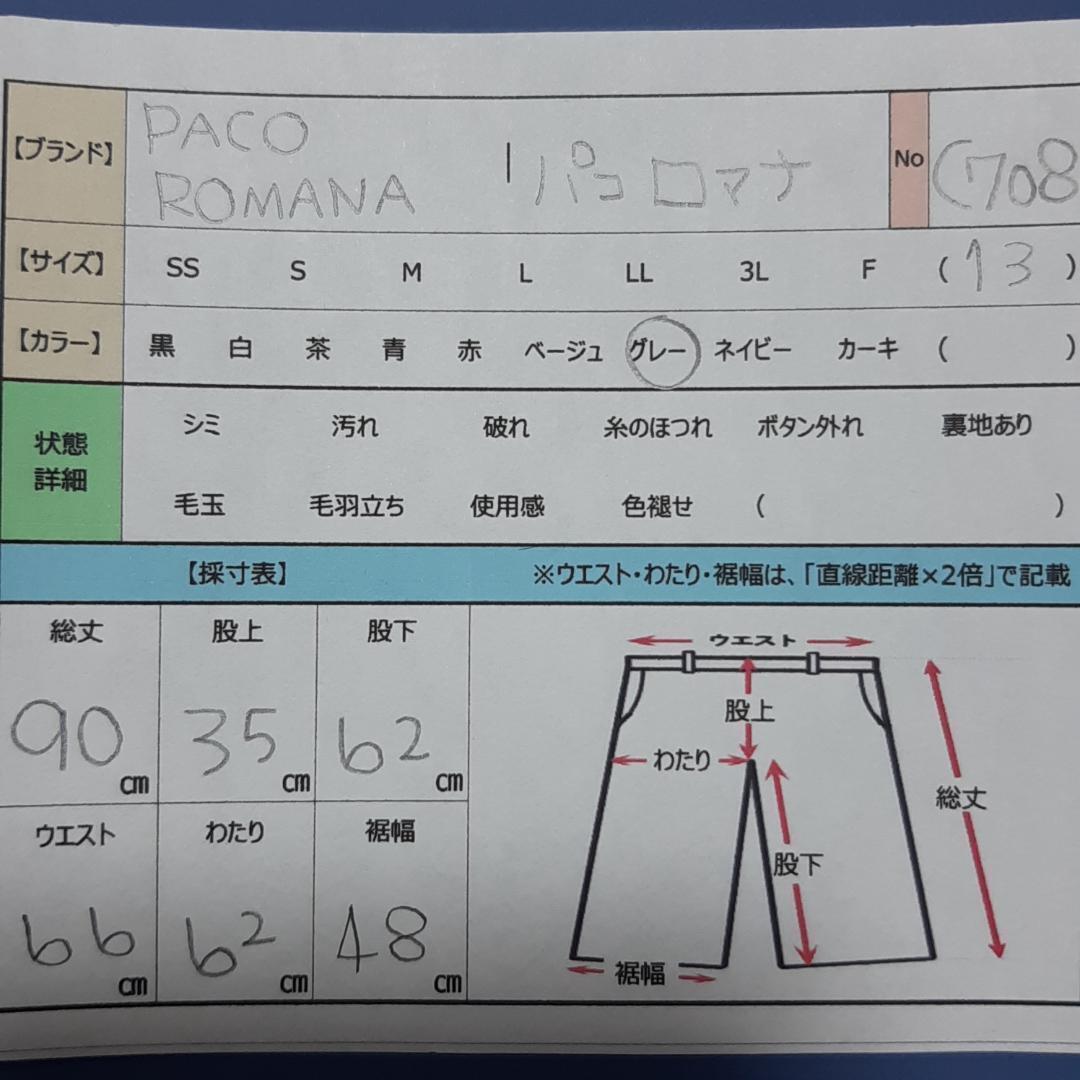 【ブランド】 PACO ROMANA | パコ ロマナ No C708
【サイズ】 SS S M L LL 3L F ( 13 )
【カラー】 黒 白 茶 青 赤 ベージュ グレー ネイビー カーキ ( )
状態詳細
シミ 汚れ 破れ 糸のほつれ ボタン外れ 裏地あり
毛玉 毛羽立ち 使用感 色褪せ ( )
【採寸表】 ※ウエスト・わたり・裾幅は、「直線距離×2倍」で記載
総丈 股上 股下
90cm 35cm 62cm
ウエスト わたり 裾幅
66cm 62cm 48cm
ウエスト
股上
わたり
総丈
股下
裾幅